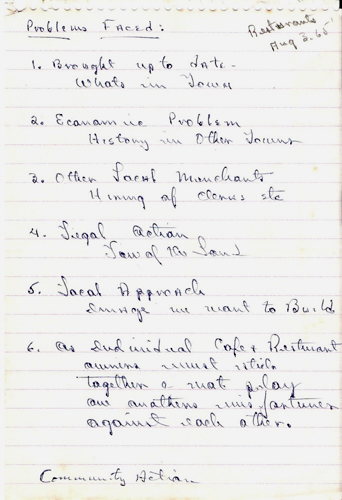 Restaurants
Aug 3. 65
Problems Faced:
1. Brought up to date-
Whats in Town
2. Economic Problem
History in Other Towns
3. Other Local Merchants
Hiring of Clerks etc
4. Legal Action
Law of the Land
5. Local Approach
Image we want to Build
6. As Individual Cafe & Resturant
owners must stick
together & not play
one anothers misfortunes
against each other.
Community Action